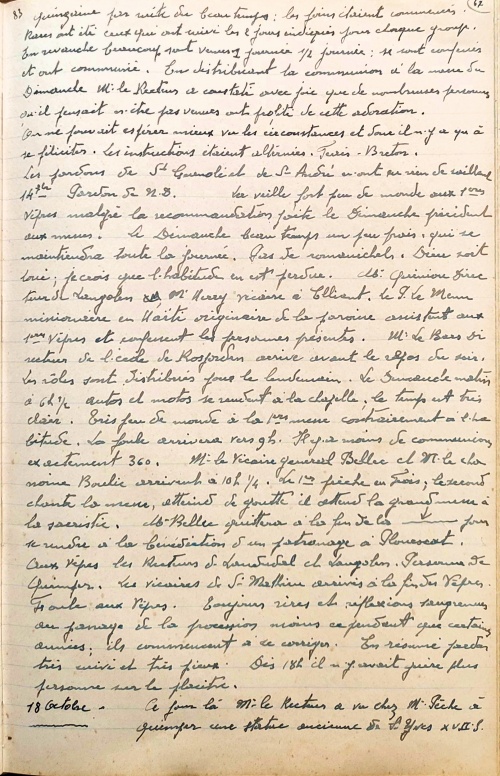 83
67
quinzaine par suite du beau temps ; les foins étaient commencés.
Rares ont été ceux qui ont suivi les 2 jours indiqués pour chaque groupe.
En revanche beaucoup sont venus 1 journée 1/2 journée ; se sont confessés
et ont communié. En distribuant la communion à la messe du
Dimanche Mr le Recteur a constaté avec joie que de nombreuses personnes
qu'il pensait n'être pas venues ont profité de cette adoration.
On ne pouvait espérer mieux vu les circonstances et donc il n'y a qu'à
se féliciter. Les instructions étaient alternées. Français - Breton.
Les pardons de St Guénolé et de St André n'ont eu rien de saillant
14 Pardon de N.D. La veille fort peu de monde aux 1ères
Vêpres malgré la recommandation faite le Dimanche précédent
aux messes. Le Dimanche beau temps un peu frais, qui se
maintiendra toute la journée. Pas de romanichels. Dieu soit
loué ; je crois que l'habitude en est perdue. Mr Quiniou Direc
teur de Langolen Mr Henry vicaire à Elliant, le P. Le Menn
missionnaire en Haïti originaire de la paroisse assistent aux
1ères Vêpres et confessent les personnes présentes. Mr Le Bars Di
recteur de l'école de Rosporden arrive avant le repas du soir.
Les rôles sont distribués pour le lendemain. Le Dimanche matin
à 6h 1/2 autos et motos se rendent à la chapelle, le temps est très
clair. Très peu de monde à la 1ère messe contrairement à l'ha
bitude. La foule arrivera vers 9h. Il y a moins de communions
exactement 360. Mr le Vicaire général Bellec et Mr le cha
noine Boulic arrivent à 10h 1/4. Le 1er prêche en Frais ; le second
chante la messe, atteint de goutte il attend la grand messe à
la sacristie. Mr Bellec quittera à la fin de la pour
se rendre à la bénédiction d'un patronage à Plouescat.
Aux Vêpres les Recteurs de Landudal et Langolen. Personne de
Quimper. Les vicaires de St Mathieu arrivés à la fin des Vêpres.
Foule aux Vêpres. Toujours rires et réflexions saugrenues
au passage de la procession moins cependant que certaines
années ; ils commencent à se corriger. En résumé pardon
très suivi et très pieux. Dès 18h il n'y avait guère plus
personne sur le placître.
18 Octobre - Ce jour là Mr le Recteur a vu chez Mr Pèche à
Quimper une statue ancienne de St Yves XVIIe S.